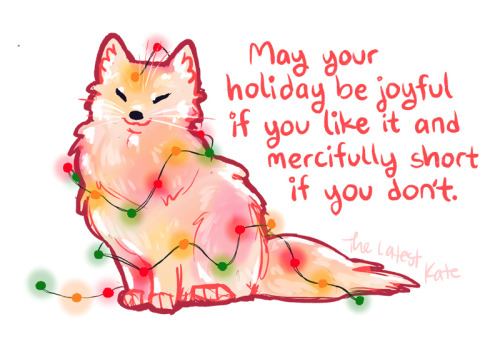 May your
holiday be joyful
if you like it and
mercifully short
if you don't.
The Latest
Kate